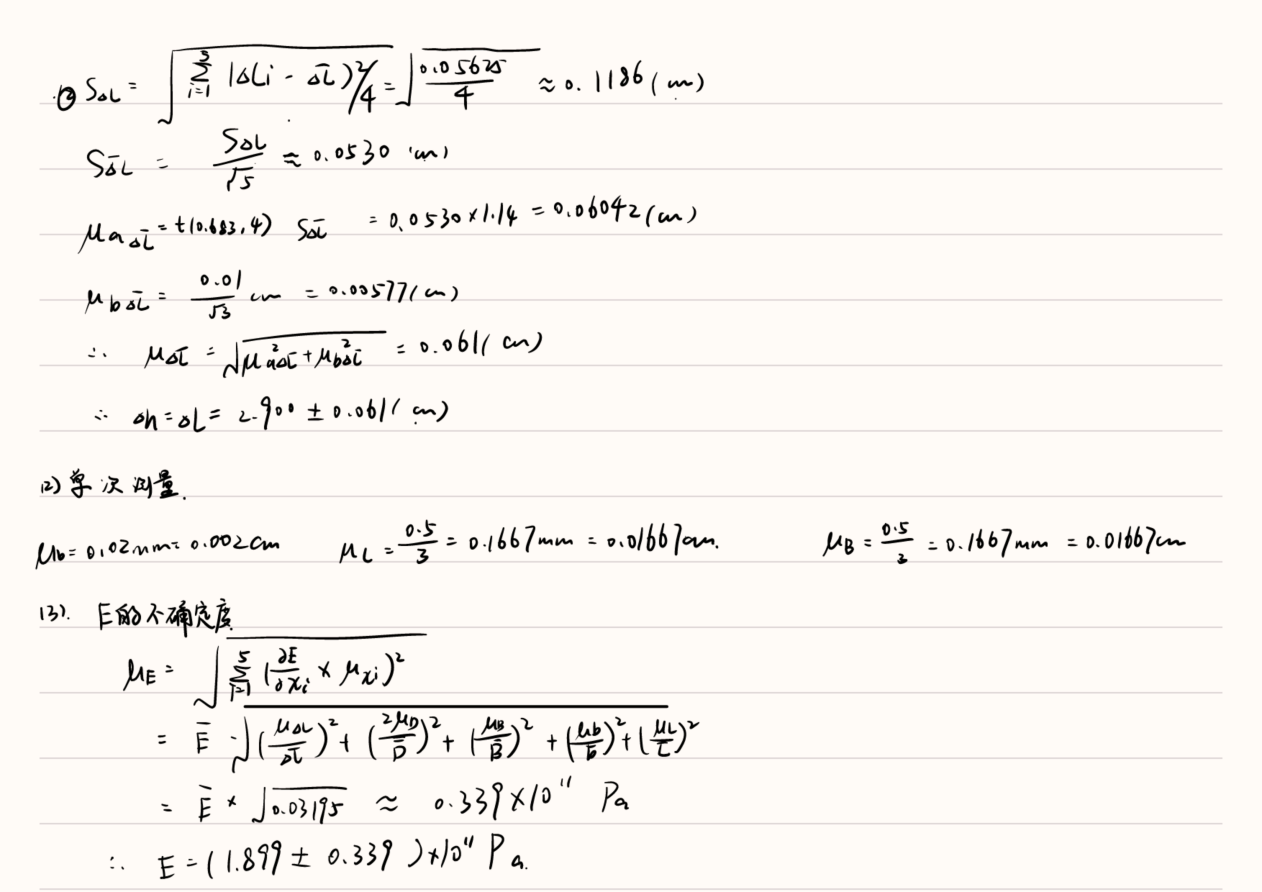 ② S_ΔL = √(Σ_{i=1}^{5} (ΔLi - Δ̄L̄)²/4) = √(0.05625/4) ≈ 0.1186 (cm)
S_Δ̄L̄ = S_ΔL/√5 ≈ 0.0530 (cm)
μa_Δ̄L̄ = t(0.683, 4) S_Δ̄L̄ = 0.0530×1.14 = 0.06042 (cm)
μb_Δ̄L̄ = 0.01/√3 cm = 0.00577 (cm)
∴ μ_Δ̄L̄ = √(μ²a_Δ̄L̄ + μ²b_Δ̄L̄) = 0.061 (cm)
∴ Δh = ΔL = 2.900 ± 0.061 (cm)
(2) 单次测量.
μb = 0.02mm = 0.002cm μL = 0.5/3 = 0.1667mm = 0.01667cm. μB = 0.5/3 = 0.1667mm = 0.01667cm
(3). E的不确定度
μE = √(Σ_{i=1}^{5} (∂E/∂xi × μxi)²)
= Ē · √((μ_ΔL/Δ̄L̄)² + (2μD/D̄)² + (μB/B̄)² + (μb/b̄)² + (μL/L̄)²)
= Ē × √0.03195 ≈ 0.339×10¹¹ Pa
∴ E = (1.899 ± 0.339)×10¹¹ Pa.